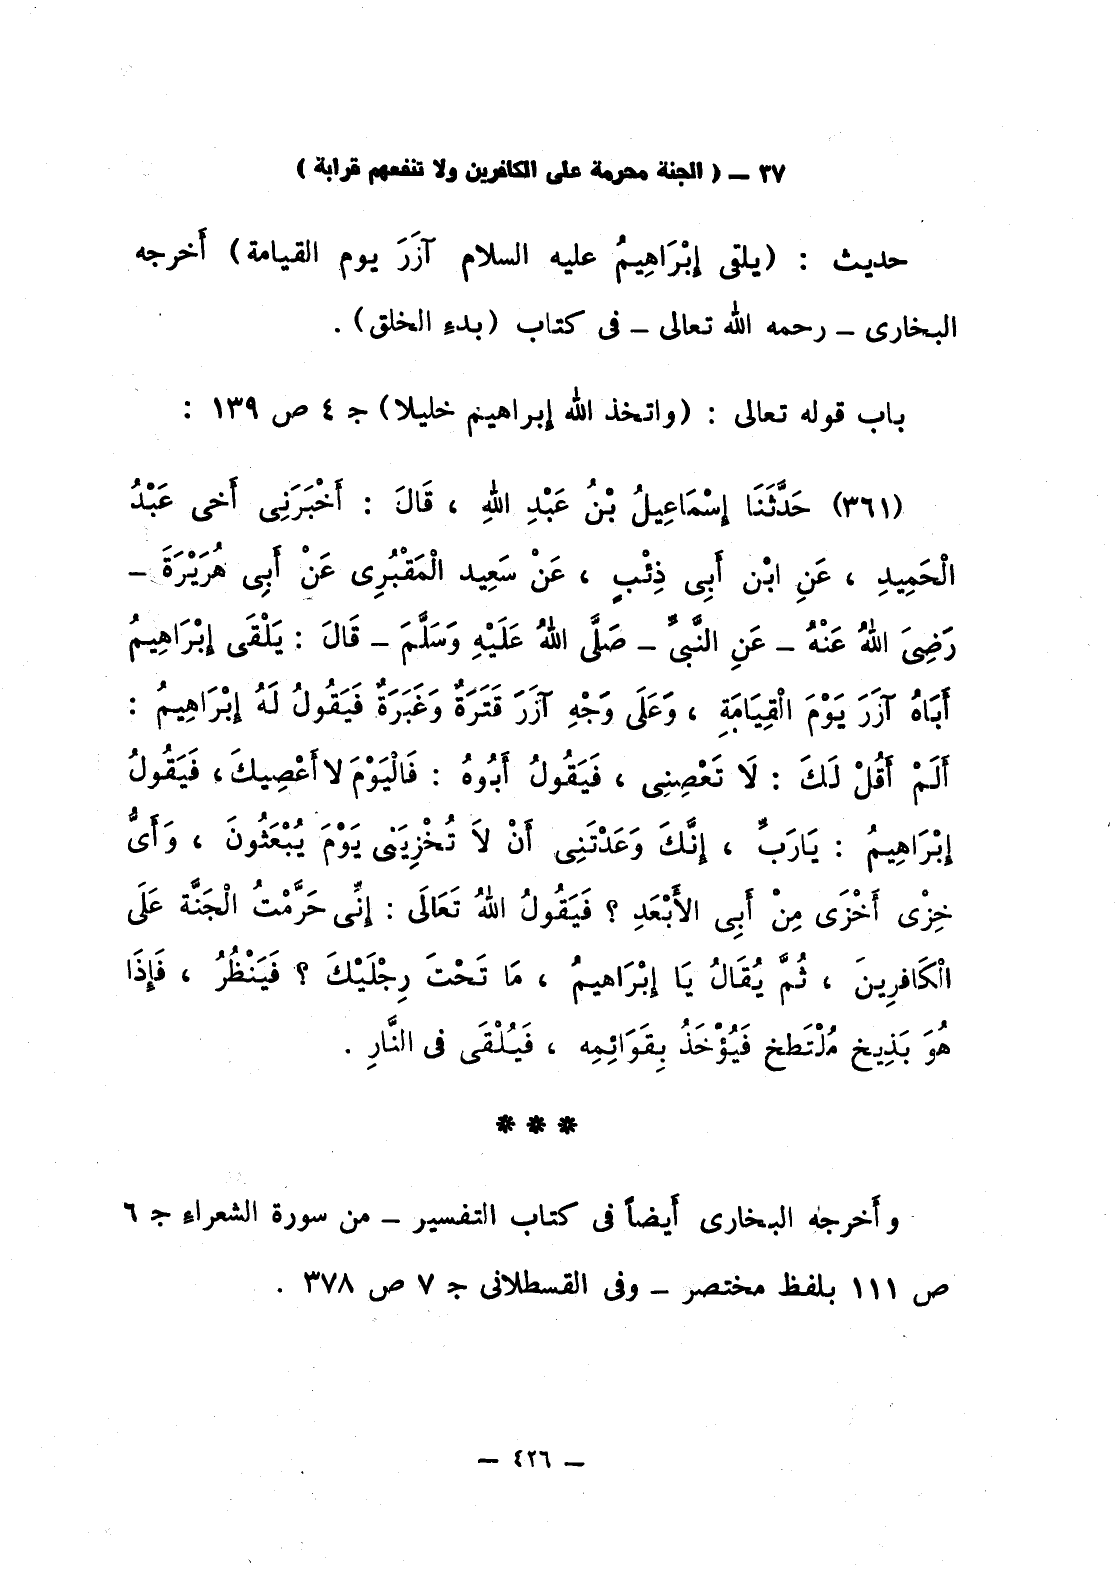 ٣٧ ــ ( الجنة محرمة على الكافرين ولا تنفعهم قرابة )
حديث : (يلقى إِبْرَاهِيمُ عليه السلام آزَرَ يوم القيامة) أَخرجه
البخارى ــ رحمه الله تعالى ــ فى كتاب (بدءِ الخلق) .
باب قوله تعالى : (واتخذ الله إِبراهيم خليلا) جـ ٤ ص ١٣٩ :
(٣٦١) حَدَّثَنَا إِسْمَاعِيلُ بْنُ عَبْدِ اللهِ ، قَالَ : أَخْبَرَنِى أَخى عَبْدُ
الْحَمِيدِ ، عَنِ ابْن أَبِى ذِئْبٍ ، عَنْ سَعِيد الْمَقْبُرِى عَنْ أَبِى هُرَيْرَةَ ــ
رَضِىَ اللهُ عَنْهُ ــ عَنِ النَّبىِّ ــ صَلَّى اللهُ عَلَيْهِ وَسَلَّمَ ــ قَالَ : يَلْقَى إِبْرَاهِيمُ
أَبَاهُ آزَرَ يَوْمَ الْقِيَامَةِ ، وَعَلَى وَجْهِ آزَرَ قَتَرَةٌ وَغَبَرَةٌ فَيَقُولُ لَهُ إِبْرَاهِيمُ :
أَلَمْ أَقُلْ لَكَ : لَا تَعْصِنِى ، فَيَقُولُ أَبُوهُ : فَالْيَوْمَ لا أَعْصِيكَ ، فَيَقُولُ
إِبْرَاهِيمُ : يَارَبِّ ، إِنَّكَ وَعَدْتَنِى أَنْ لاَ تُخْزِيَنى يَوْمَ يُبْعَثُونَ ، وَأَىُّ
خِزْى أَخْزَى مِنْ أَبِى الأَبْعَدِ ؟ فَيَقُولُ اللهُ تَعَالَى : إِنِّى حَرَّمْتُ الْجَنَّة عَلَى
الْكَافِرِينَ ، ثُمَّ يُقَالُ يَا إِبْرَاهيمُ ، مَا تَحْتَ رِجْلَيْكَ ؟ فَيَنْظُرُ ، فَإِذَا
هُوَ بَذِيخ مُلْتَطخ فَيُؤْخَذُ بِقَوَائِمِه ، فَيُلْقَى فى النَّارِ .
* * *
وأَخرجه البخارى أَيضاً فى كتاب التفسير ــ من سورة الشعراءِ جـ ٦
ص ١١١ بلفظ مختصر ــ وفى القسطلانى جـ ٧ ص ٣٧٨ .
ــ ٤٢٦ ــ